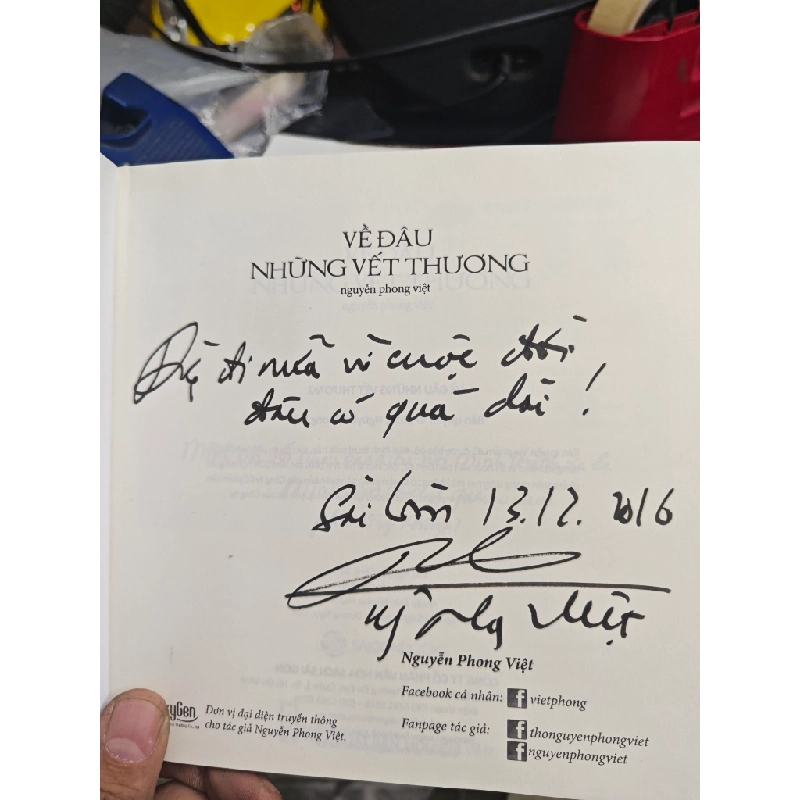 VỀ ĐÂU
NHỮNG VẾT THƯƠNG
nguyễn phong việt
đi nữa vì cuộc đời
đâu có quá dài!
Sài Gòn 13.12.2016
Việt
Nguyễn Phong Việt
Facebook cá nhân: f vietphong
Fanpage tác giả: f thonguyenphongviet
f nguyenphongviet
Đơn vị đại diện truyền thông
cho tác giả Nguyễn Phong Việt.